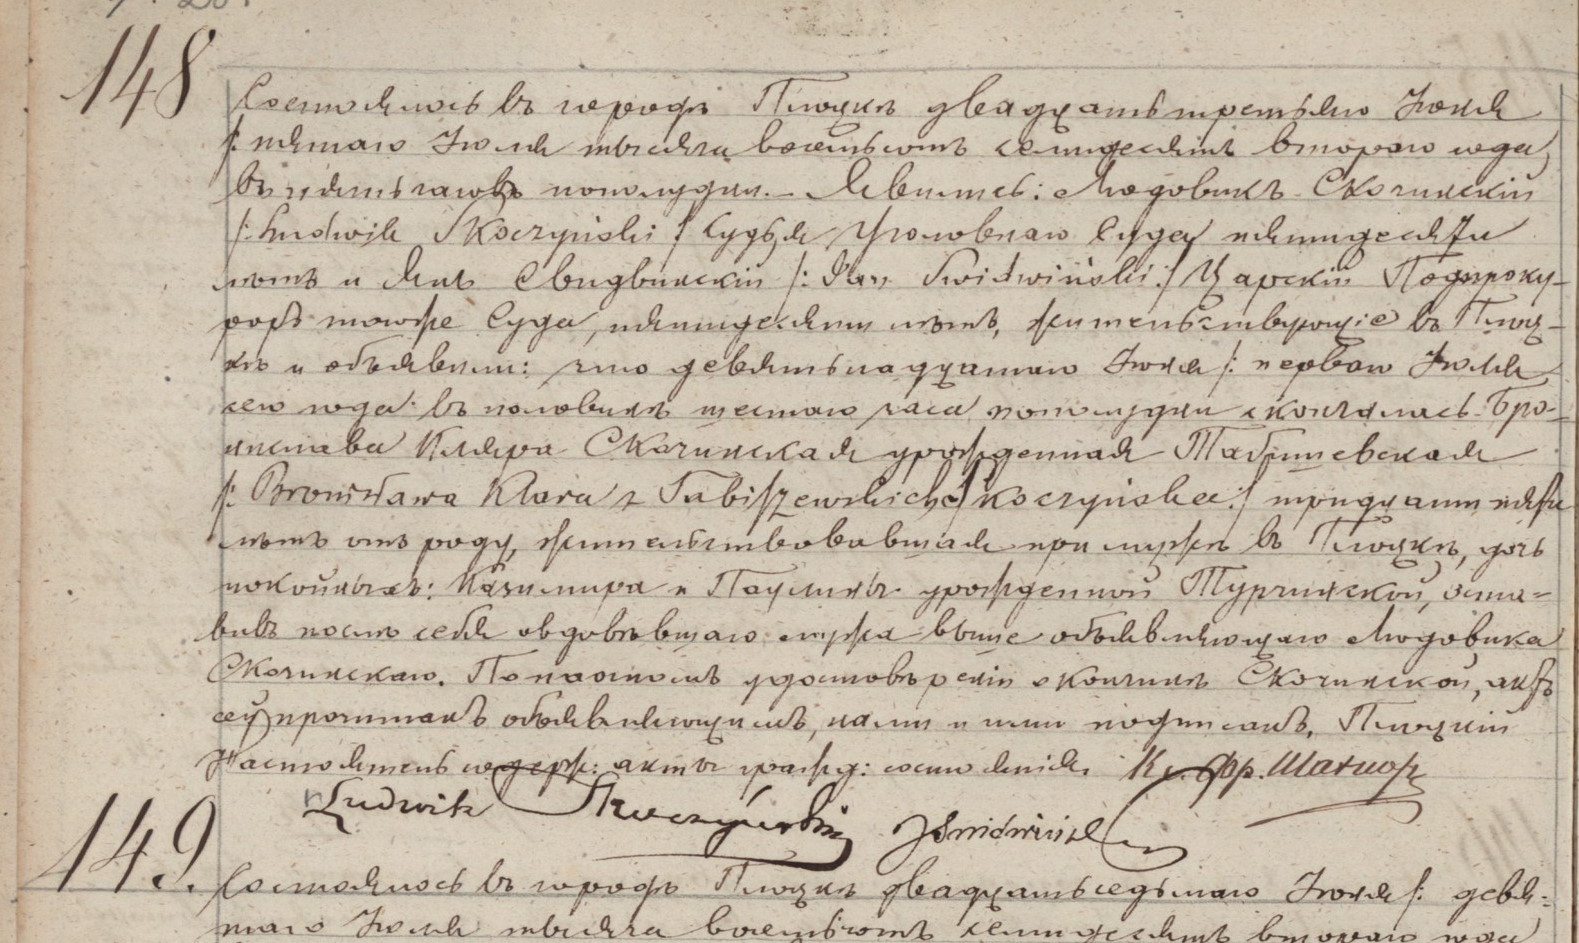 148
Состоялось въ городѣ Плоцкѣ двадцать третьяго Іюня
/: пятаго Іюля тысяча восемьсотъ семидесятъ втораго года,
въ пять часовъ пополудни. – Явились: Людовикъ Скочинскій
/: Ludwik Skoczyński :/ Судья Уголовнаго Суда пятидесяти
лѣтъ и Янъ Свидвинскій /: Jan Swidwiński :/ Царскій Подпроку-
роръ тогоже Суда, пятидесяти лѣтъ, жительствующіе въ Плоц-
кѣ и объявили: что девятьнадцатаго Іюня /: перваго Іюля
сего года въ половинѣ шестаго часа пополудни скончалась Бро-
нислава Кляра Скочинская урожденная Табишевская
/: Bronisława Klara z Tabiszewskich Skoczyńska :/ тридцати пяти
лѣтъ отъ роду, жительствовавшая при мужѣ въ Плоцкѣ, дочь
покойныхъ: Казимира и Паулины урожденной Турчинской, оста-
вивъ послѣ себя овдовѣвшаго мужа выше объявляющаго Людовика
Скочинскаго. По настомъ удостовѣреніи о кончинѣ Скочинской, актъ
сей прочитанъ объявляющимъ, нами и ими подписанъ. Плоцкій
Настоятель содерж: акты гражд: состоянія. К. Фр. Шатнор
Ludwik Skoczyński JSwidwiński
149.
Состоялось въ городѣ Плоцкѣ двадцать седьмаго Іюня /: девя-
таго Іюля тысяча восемьсотъ семидесятъ втораго года